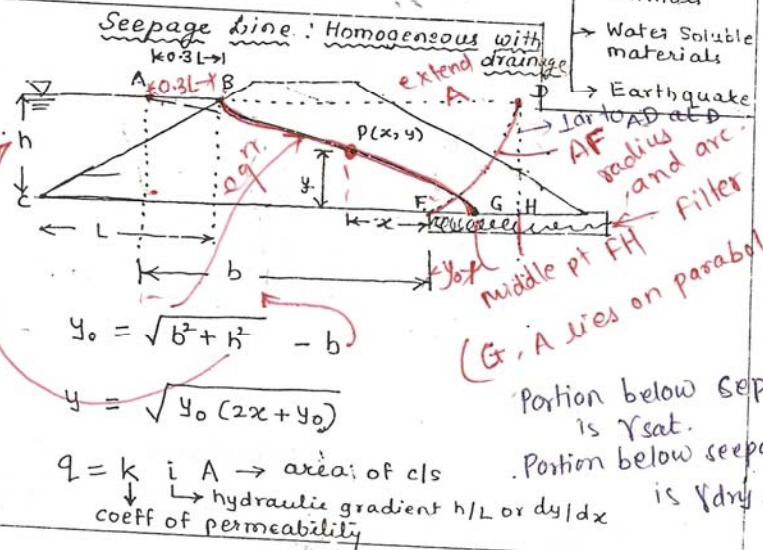 Seepage Line : Homogeneous with drainage
→ Water Soluble materials
→ Earthquake
k0.3L→
A k0.3L→ B
extend A
D
h
P(x,y)
→ lar to AD at D
AF radius and arc.
eqn.
y
C
F G H
Filter
← L →
← x →
y₀
middle pt FH
b
(G, A lies on parabol
y₀ = √b²+h² - b
y = √y₀(2x+y₀)
Portion below seep
is γsat.
Portion below seepa
is γdry
q = k i A → area of c/s
↳ hydraulic gradient h/L or dy/dx
coeff of permeability